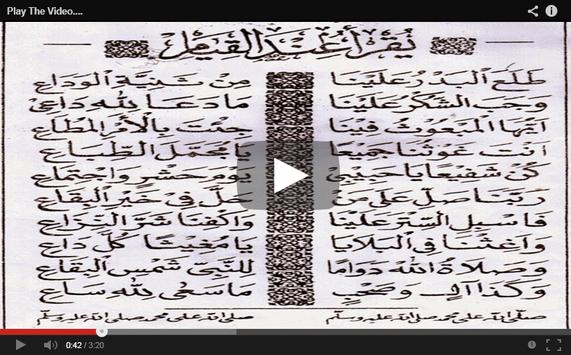 Play The Video....
يقرأ عند القيام
طلع البدر علينا من ثنية الوداع
وجب الشكر علينا ما دعا لله داعي
ايها المبعوث فينا جئت بالأمر المطاع
انت غوثنا جميعا يا مجمل الطباع
كن شفيعا يا حبيبي يوم حشر واجتماع
ربنا صل على من حل في خير البقاع
فاسبل الستر علينا واكفنا شر النزاع
واغثنا في البلايا يا مغيثا كل داع
وصلاة الله دواما للنبي شمس البقاع
وكذا آل وصحب ما سعى لله ساع
صلى الله على محمد صلى الله عليه وسلم صلى الله على محمد صلى الله عليه وسلم
0:42 / 3:20